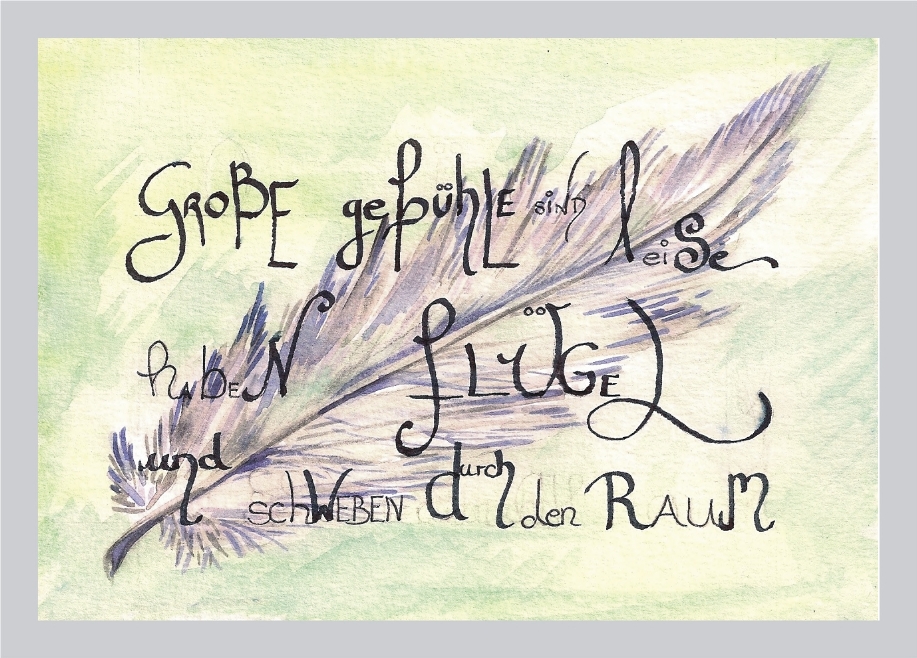 GROßE gefühLE SIND leiSe
habeN fLÜGEL
und schWEBEN durch den RAUM